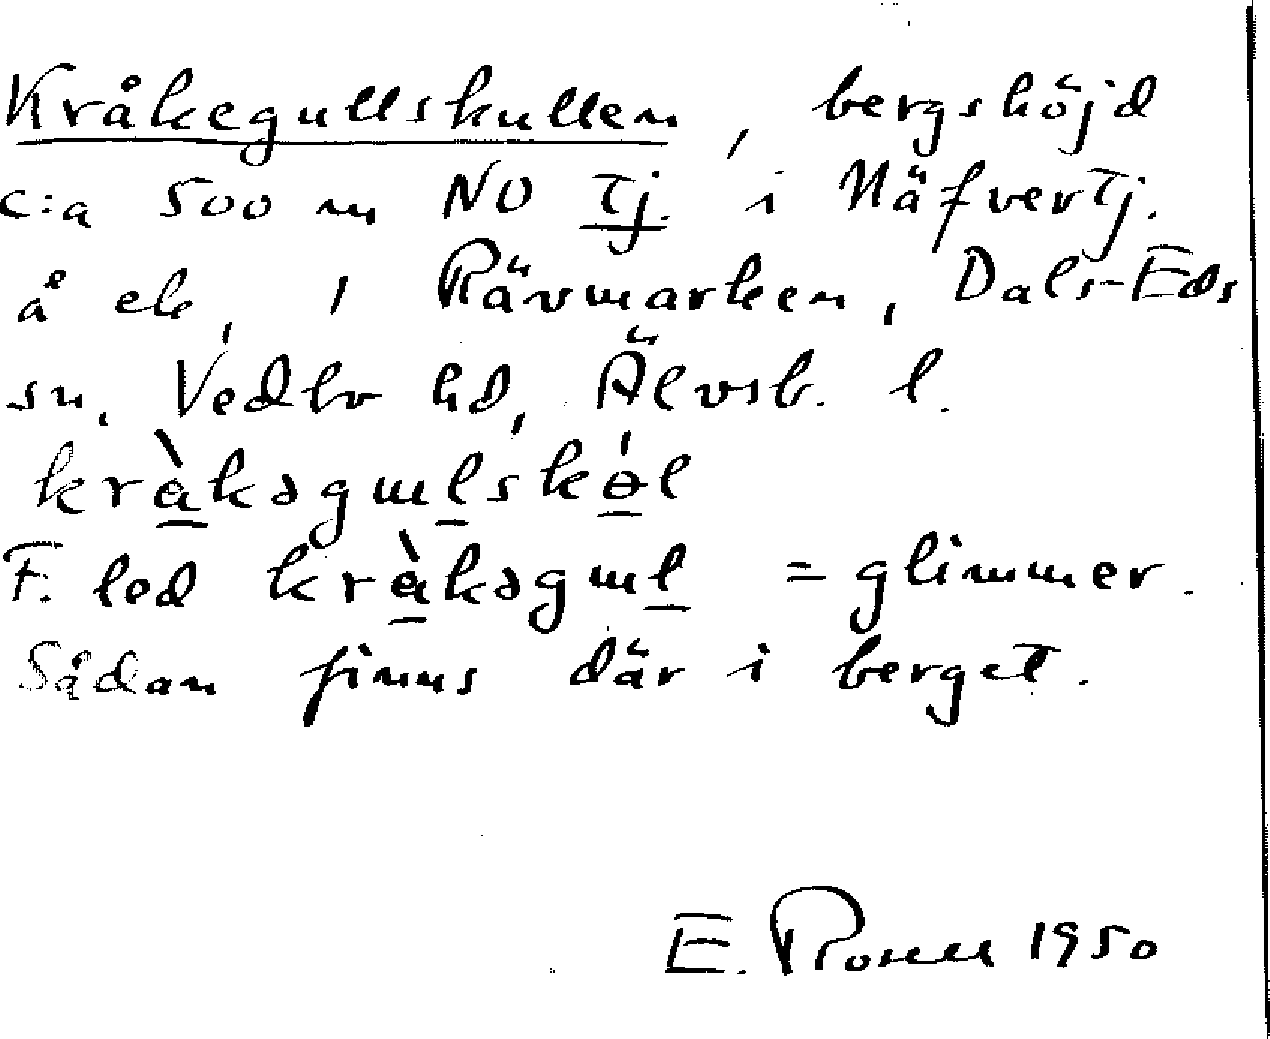 Kråkegullskullen, bergshöjd
c:a 500 m NO Tj. i NäfverTj.
å ek, 1 Rävmarken, Dals-Eds
sn, Vedbo hd, Älvsb. l.
kràkəgulskɵ́l
F. led kràkəgul = glimmer.
Sådan finns där i berget.
E. Rosell 1950